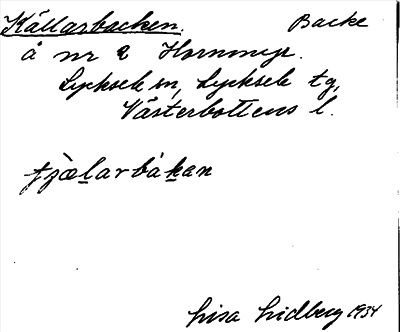 Källarbacken. Backe
å nr 2 Hornmyr.
Lycksele sn, Lycksele tg,
Västerbottens l.
Lisa Lidberg 1934